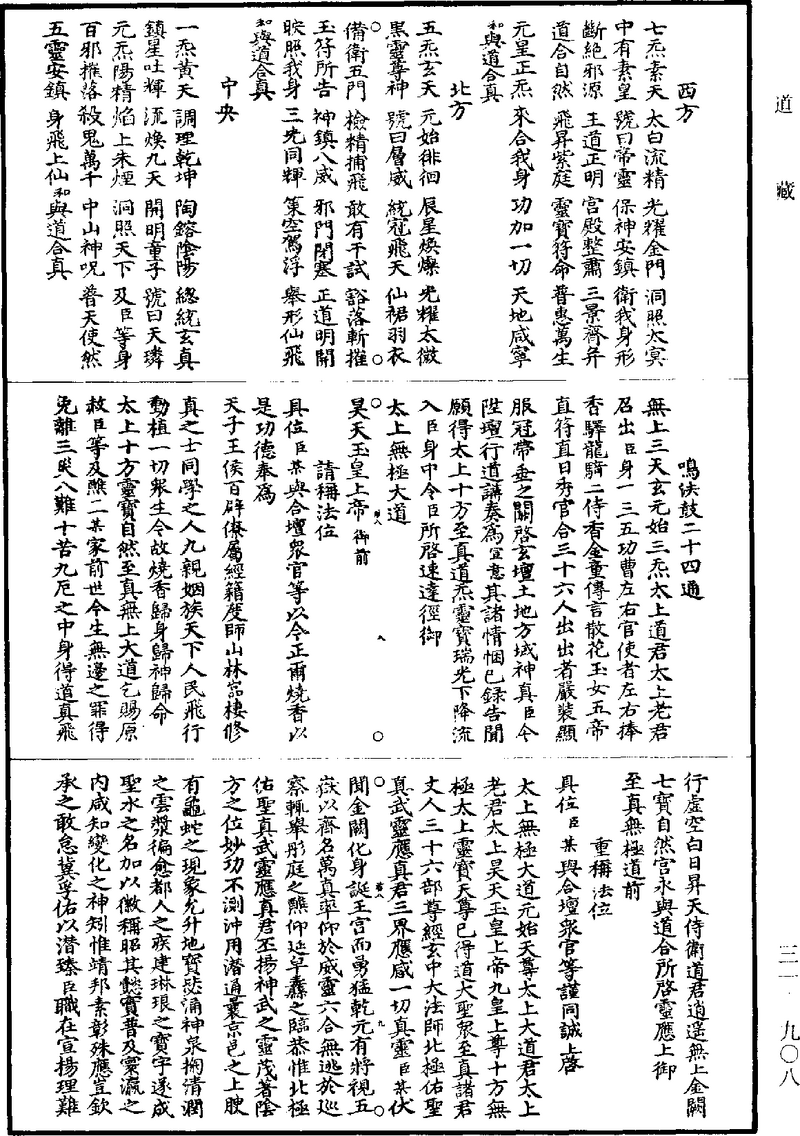 道藏
三一·九〇八
西方
七炁素天 太白流精 光耀金門 洞照太冥
中有素皇 號曰帝靈 保神安鎮 衛我身形
斷絕邪源 王道正明 宮殿整肅 三景齊并
道合自然 飛昇紫庭 靈寶符命 普惠萬生
元皇正炁 來合我身 功加一切 天地咸寧
和與道合真
北方
五炁玄天 元始徘徊 辰星煥爍 光耀太微
黑靈尊神 號曰層威 統冠飛天 仙裙羽衣
備衛五門 檢精捕飛 敢有干試 豁落斬摧
玉符所告 神鎮八威 邪門閉塞 正道明開
映照我身 三光同輝 策空駕浮 舉形仙飛
和與道合真
中央
一炁黃天 調理乾坤 陶鎔陰陽 總統玄真
鎮星吐輝 流煥九天 開明童子 號曰天璘
元炁陽精 焰上朱煙 洞照天下 及臣等身
百邪摧落 殺鬼萬千 中山神呪 普天使然
五靈安鎮 身飛上仙 和與道合真
鳴法鼓二十四通
無上三天玄元始三炁太上道君太上老君
召出臣身一三五功曹左右官使者左右捧
香驛龍騎二侍香金童傳言散花玉女五帝
直符直日香官合三十六人出出者嚴裝顯
服冠帶垂之關啓玄壇土地方域神真臣今
陞壇行道講奏爲宣意其諸情悃已録告聞
願得太上十方至真道炁靈寶瑞光下降流
入臣身中令臣所啓速達徑御
太上無極大道
昊天玉皇上帝御前
請稱法位
具位臣某與合壇衆官等以今正爾燒香以
是功德奉爲
天子王侯百辟僚屬經籍度師山林嵓棲修
真之士同學之人九親姻族天下人民飛行
動植一切衆生令故燒香歸身歸神歸命
太上十方靈寶自然至真無上大道乞賜原
赦臣等及醮二某家前世今生無邊之罪得
免離三災八難十苦九厄之中身得道真飛
行虛空白日昇天侍衛道君逍遥無上金闕
七寶自然宮永與道合所啓靈應上御
至真無極道前
重稱法位
具位臣某與合壇衆官等謹同誠上啓
太上無極大道元始天尊太上大道君太上
老君太上昊天玉皇上帝九皇上尊十方無
極太上靈寶天尊已得道大聖衆至真諸君
丈人三十六部尊經玄中大法師北極佑聖
真武靈應真君三界應感一切真靈臣某伏
聞金闕化身誕王宮而勇猛乾元有將視五
嶽以齊名萬真率仰於威靈六合無逃於巡
察輒舉彤庭之醮仰延皁纛之臨恭惟北極
佑聖真武靈應真君丕揚神武之靈茂著陰
方之位妙功不測沖用潛通曩京邑之上腴
有龜蛇之現象允升地寶毖涌神泉掬清潤
之雲漿徧愈都人之疾建琳琅之寶宇遂成
聖水之名加以徽稱昭其懿實普及寰瀛之
内咸知變化之神矧惟靖邦素彰殊應豈欽
承之敢怠冀孚佑以潛臻臣職在宣揚理難